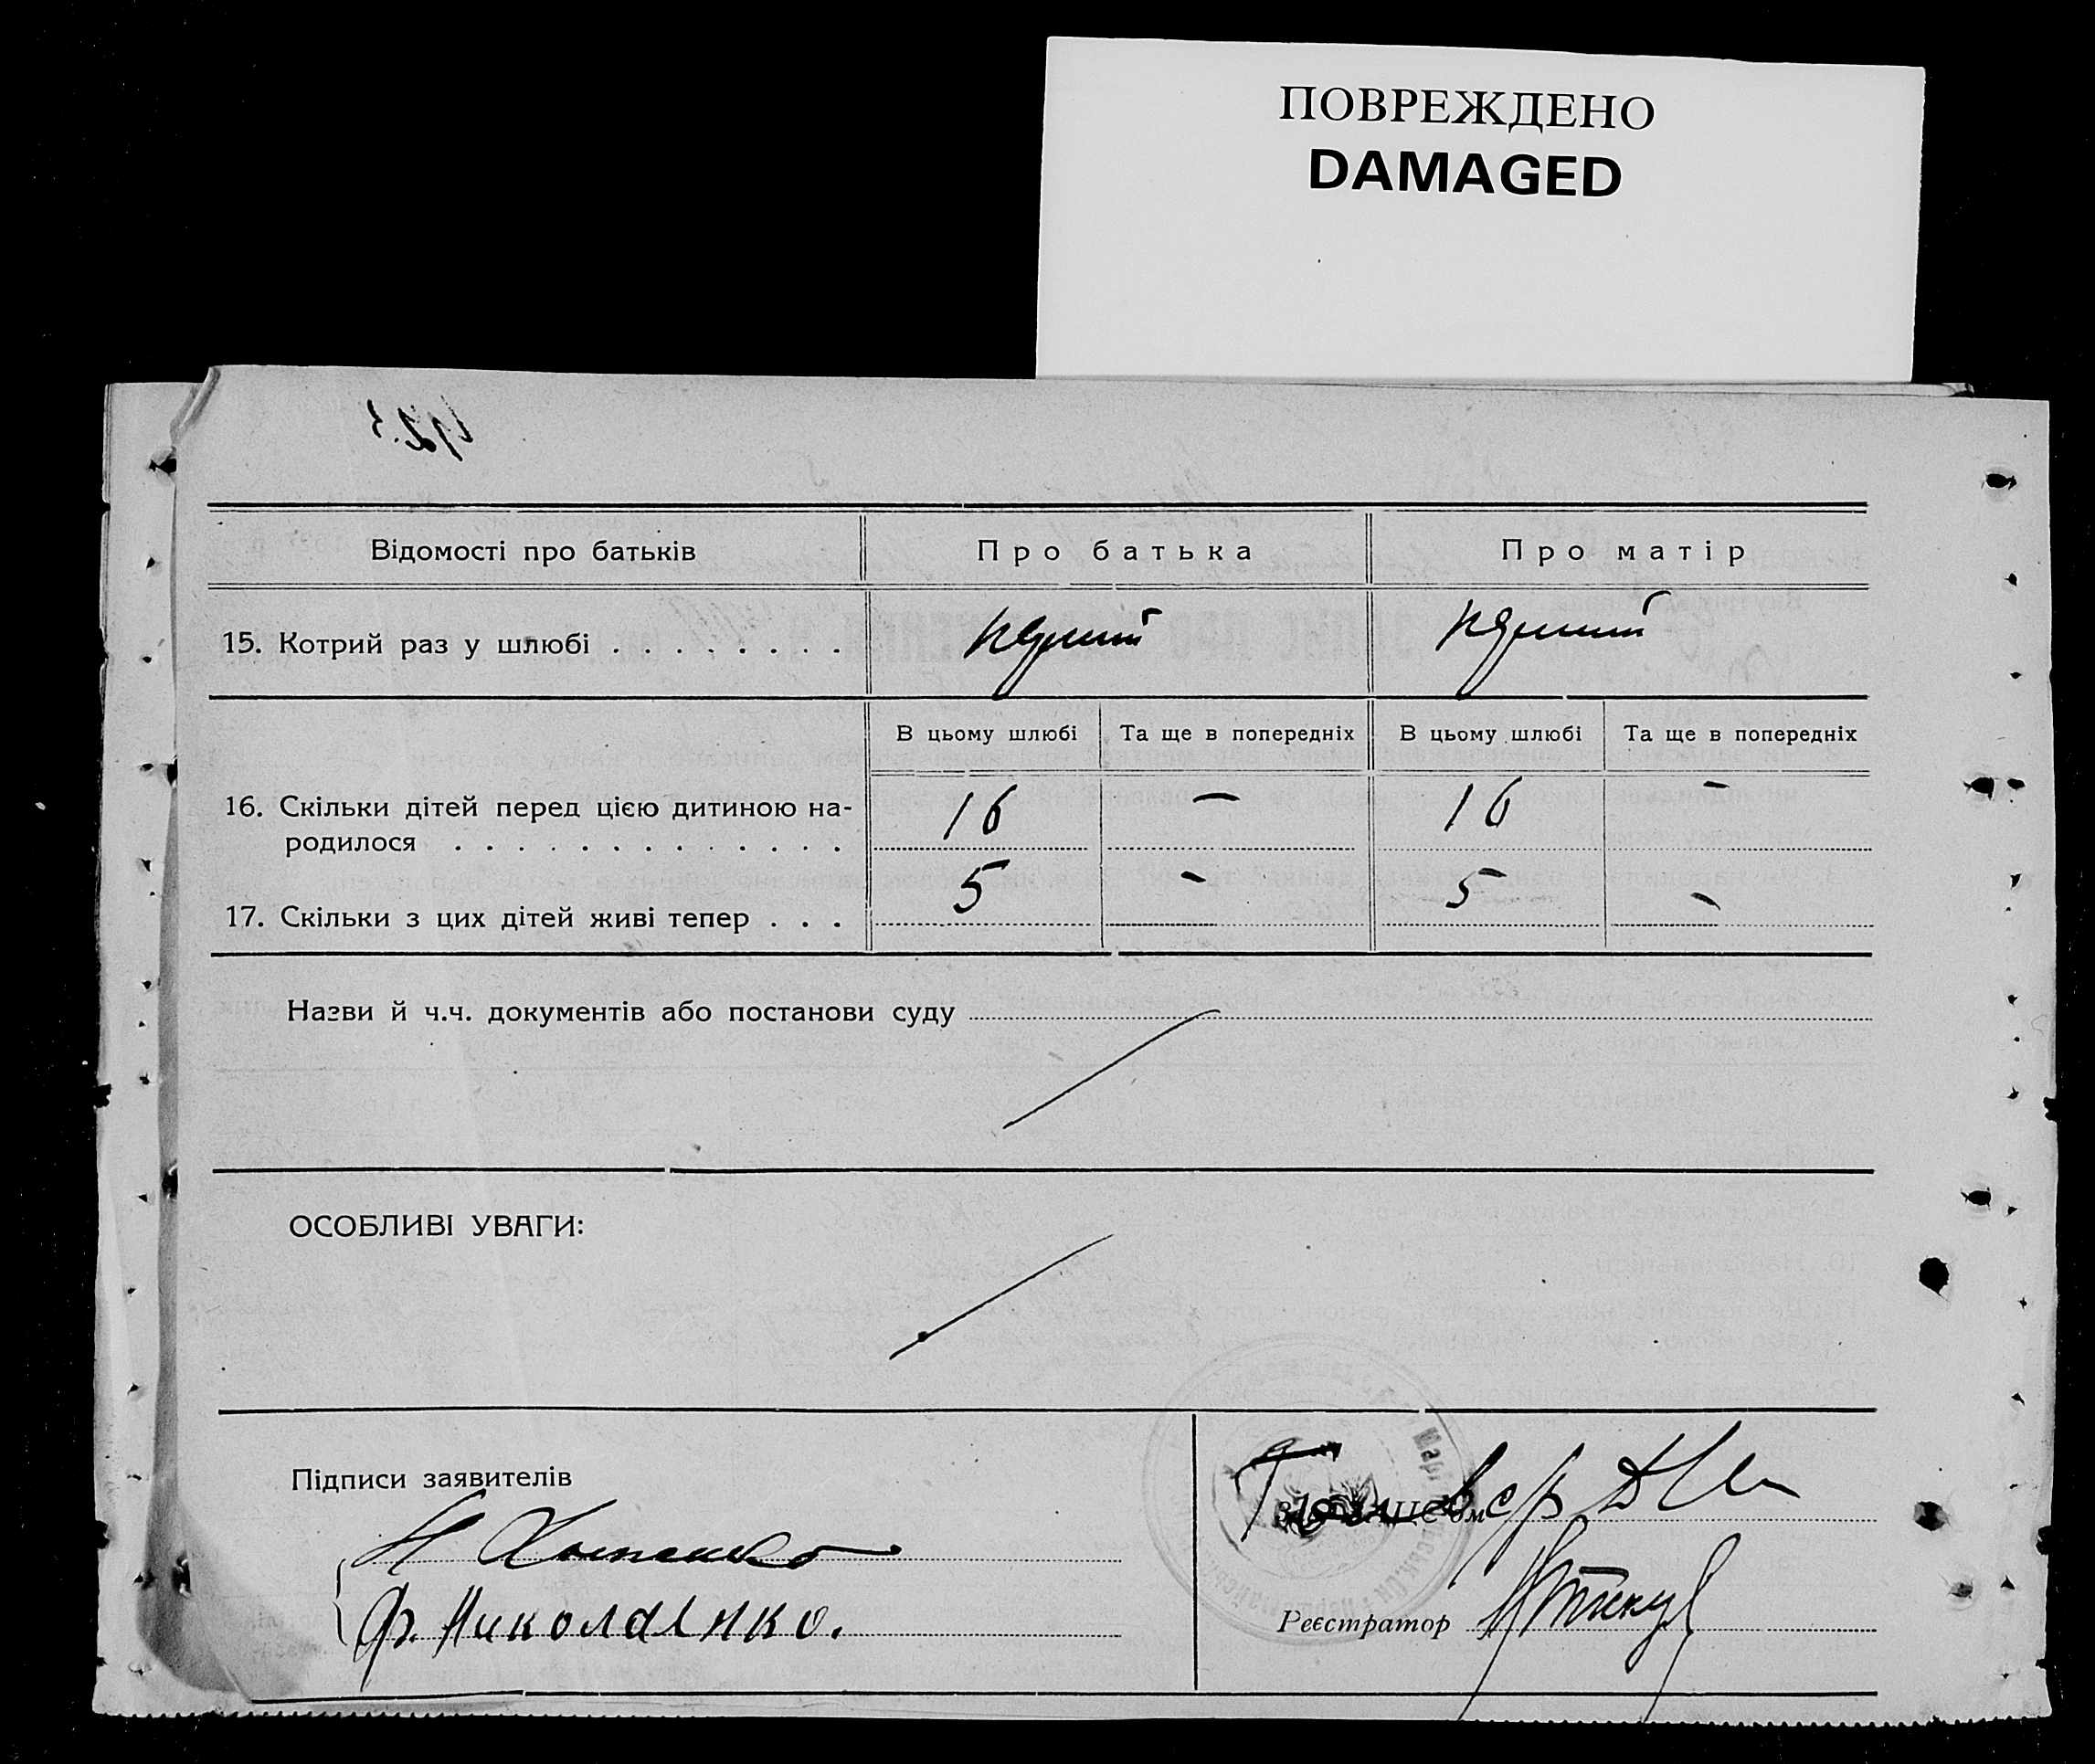 ПОВРЕЖДЕНО
DAMAGED
Відомості про батьків
Про батька
Про матір
15. Котрий раз у шлюбі . . . . . . . . .
перший
перший
В цьому шлюбі
Та ще в попередніх
В цьому шлюбі
Та ще в попередніх
16. Скільки дітей перед цією дитиною на-
родилося . . . . . . . . . . . . . .
16
—
16
—
17. Скільки з цих дітей живі тепер . . .
5
-
5
-
Назви й ч.ч. документів або постанови суду
ОСОБЛИВІ УВАГИ:
Підписи заявителів
Ф. Николаенко.
Реєстратор